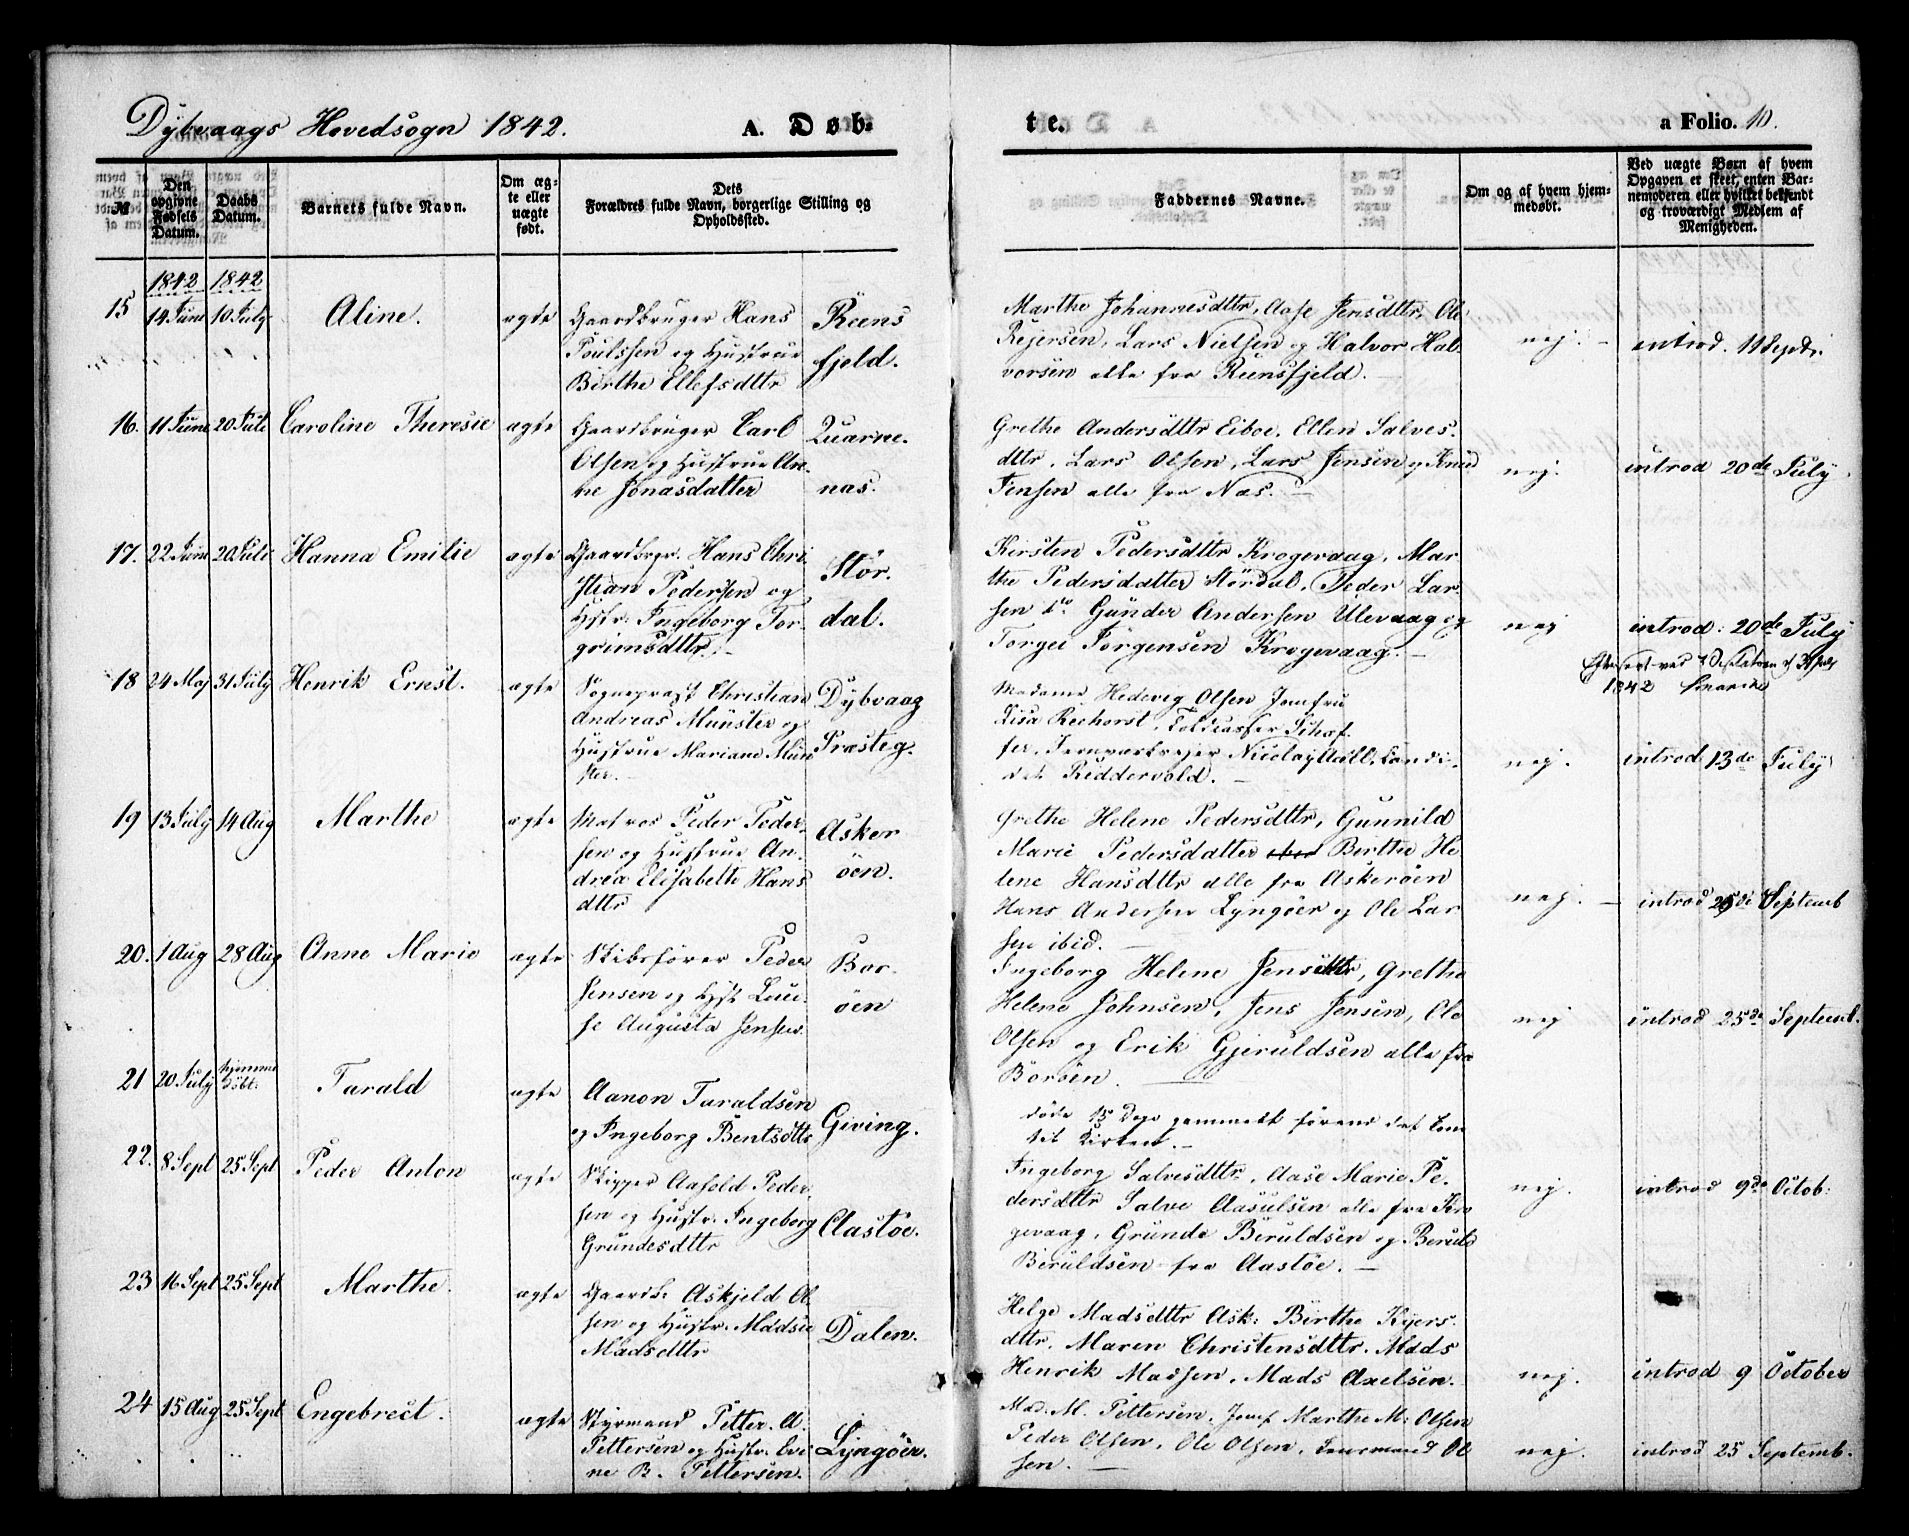 Dybvaags Hovedsogn 1842.
A. Døb-
te.
a Folio. 10.
№
Den opgivne Fødsels Datum.
Daabs Datum.
Barnets fulde Navn.
Om ægte eller uægte født.
Forældres fulde Navn, borgerlige Stilling og Opholdssted.
Faddernes Navne.
Om og af hvem hjemmedøbt.
Ved uægte Børn af hvem Opgaven er skeet, enten Barnemoderen eller hvilket bekjendt og troværdigt Medlem af Menigheden.
1842 1842
15 14 Juni 10 July Aline. ægte Gaardbruger Hans
Poulssen og Hustrue
Birthe Ellefsdttr
Reens
fjeld.
Marthe Johannesdttr, Aase Jensdttr, Ole
Rejersen, Lars Nielsen og Halvor Hal-
vorsen alle fra Reensfjeld.
nej. introd. 11 Septr.
16. 11 June 20 Juli Caroline Theresie ægte Gaardbruger Carl
Olsen og Hustrue An-
ne Jonasdatter
Quarne.
nas.
Grethe Andersdttr Eiboe, Ellen Salves-
dttr, Lars Olsen, Lars Jensen og Knud
Jensen alle fra Næs.
nej. introd 20de July
17. 22 June 20 Juli Hanna Emilie ægte Gaardbrgr. Hans Chri
stian Pedersen og
Hstr. Ingeborg Tor-
grimsdttr.
Stör.
dal.
Kirsten Pedersdttr Krogevaag, Mar-
the Pedersdatter Stördal, Peder Lar-
sen do Gunder Andersen Ulevaag og
Torgei Jörgensen Krogevaag.
nej introd: 20de July
1842
18 24 Maj 31 July Henrik Ernst. ægte Sognepræst Christian
Andreas Münster og
Hustrue Mariane Mün
ster.
Dybvaag
Præsteg.
Madame Hedevig Olsen Jomfru
Lisa Rechorst,
Nicolay Aall, Candi-
dat Riddervold.
nej. introd 13de July
19 13 July 14 Aug Marthe ægte Matros Peder Peder-
sen og Hustrue An-
drea Elisabeth Hans
dttr
Asker
öen.
Grethe Helene Pedersdttr, Gunnild
Marie Pedersdatter Berthe He
lene Hansdttr alle fra Askeröen
Hans Andersen Lyngöer og Ole Lar
sen ibid.
nej. introd 25de Septemb
20. 1 Aug 28 Aug Anne Marie ægte Skibsfører Peder
Jensen og Hst Loui-
se Augusta Jensen.
Bor-
öen
Ingeborg Helene Jensdttr, Grethe
Helene Johnsen, Jens Jensen, Ole
Olsen og Erik Gjeruldsen alle fra
Boröen.
nej introd 25de Septemb.
21 20 July hjemme döbt. Tarald ægte Aanon Taraldsen
og Ingeborg Bentsdttr
Giving.
döde 15 Dage gammelt förend det kom
til Kirken.
22. 8 Sept 25 Sept Peder Anton ægte Skipper Aasold Peder-
sen og Hustr. Ingeborg
Grundesdttr
Aastöe.
Ingeborg Salvesdttr, Aase Marie Pe-
dersdttr Salve Aasulsen alle fra Kro
gevaag, Grunde Beruldsen og Beruld
Beruldsen fra Aastöe.
nej. introd 9de Octob:
23 16 Sept 25 Sept Marthe. ægte Gaardb. Askjeld Ol
sen og Hustr. Madsie
Madsdttr
Dalen.
Helge Madsdttr Ask: Birthe Kjers-
dttr, Maren Christensdttr. Mads
Henrik Madsen, Mads Axelsen.
nej. introd 9 October
24 15 Aug 25 Sept Engebrect. ægte Styrmand Petter A.
Pettersen og Hustr. Eve
ne B. Pettersen.
Lyngöer.
Mad. M. Pettersen, Jomf Marthe M: Olsen
Peder Olsen, Ole Olsen, Ol
sen.
nej. introd 25 Septemb.